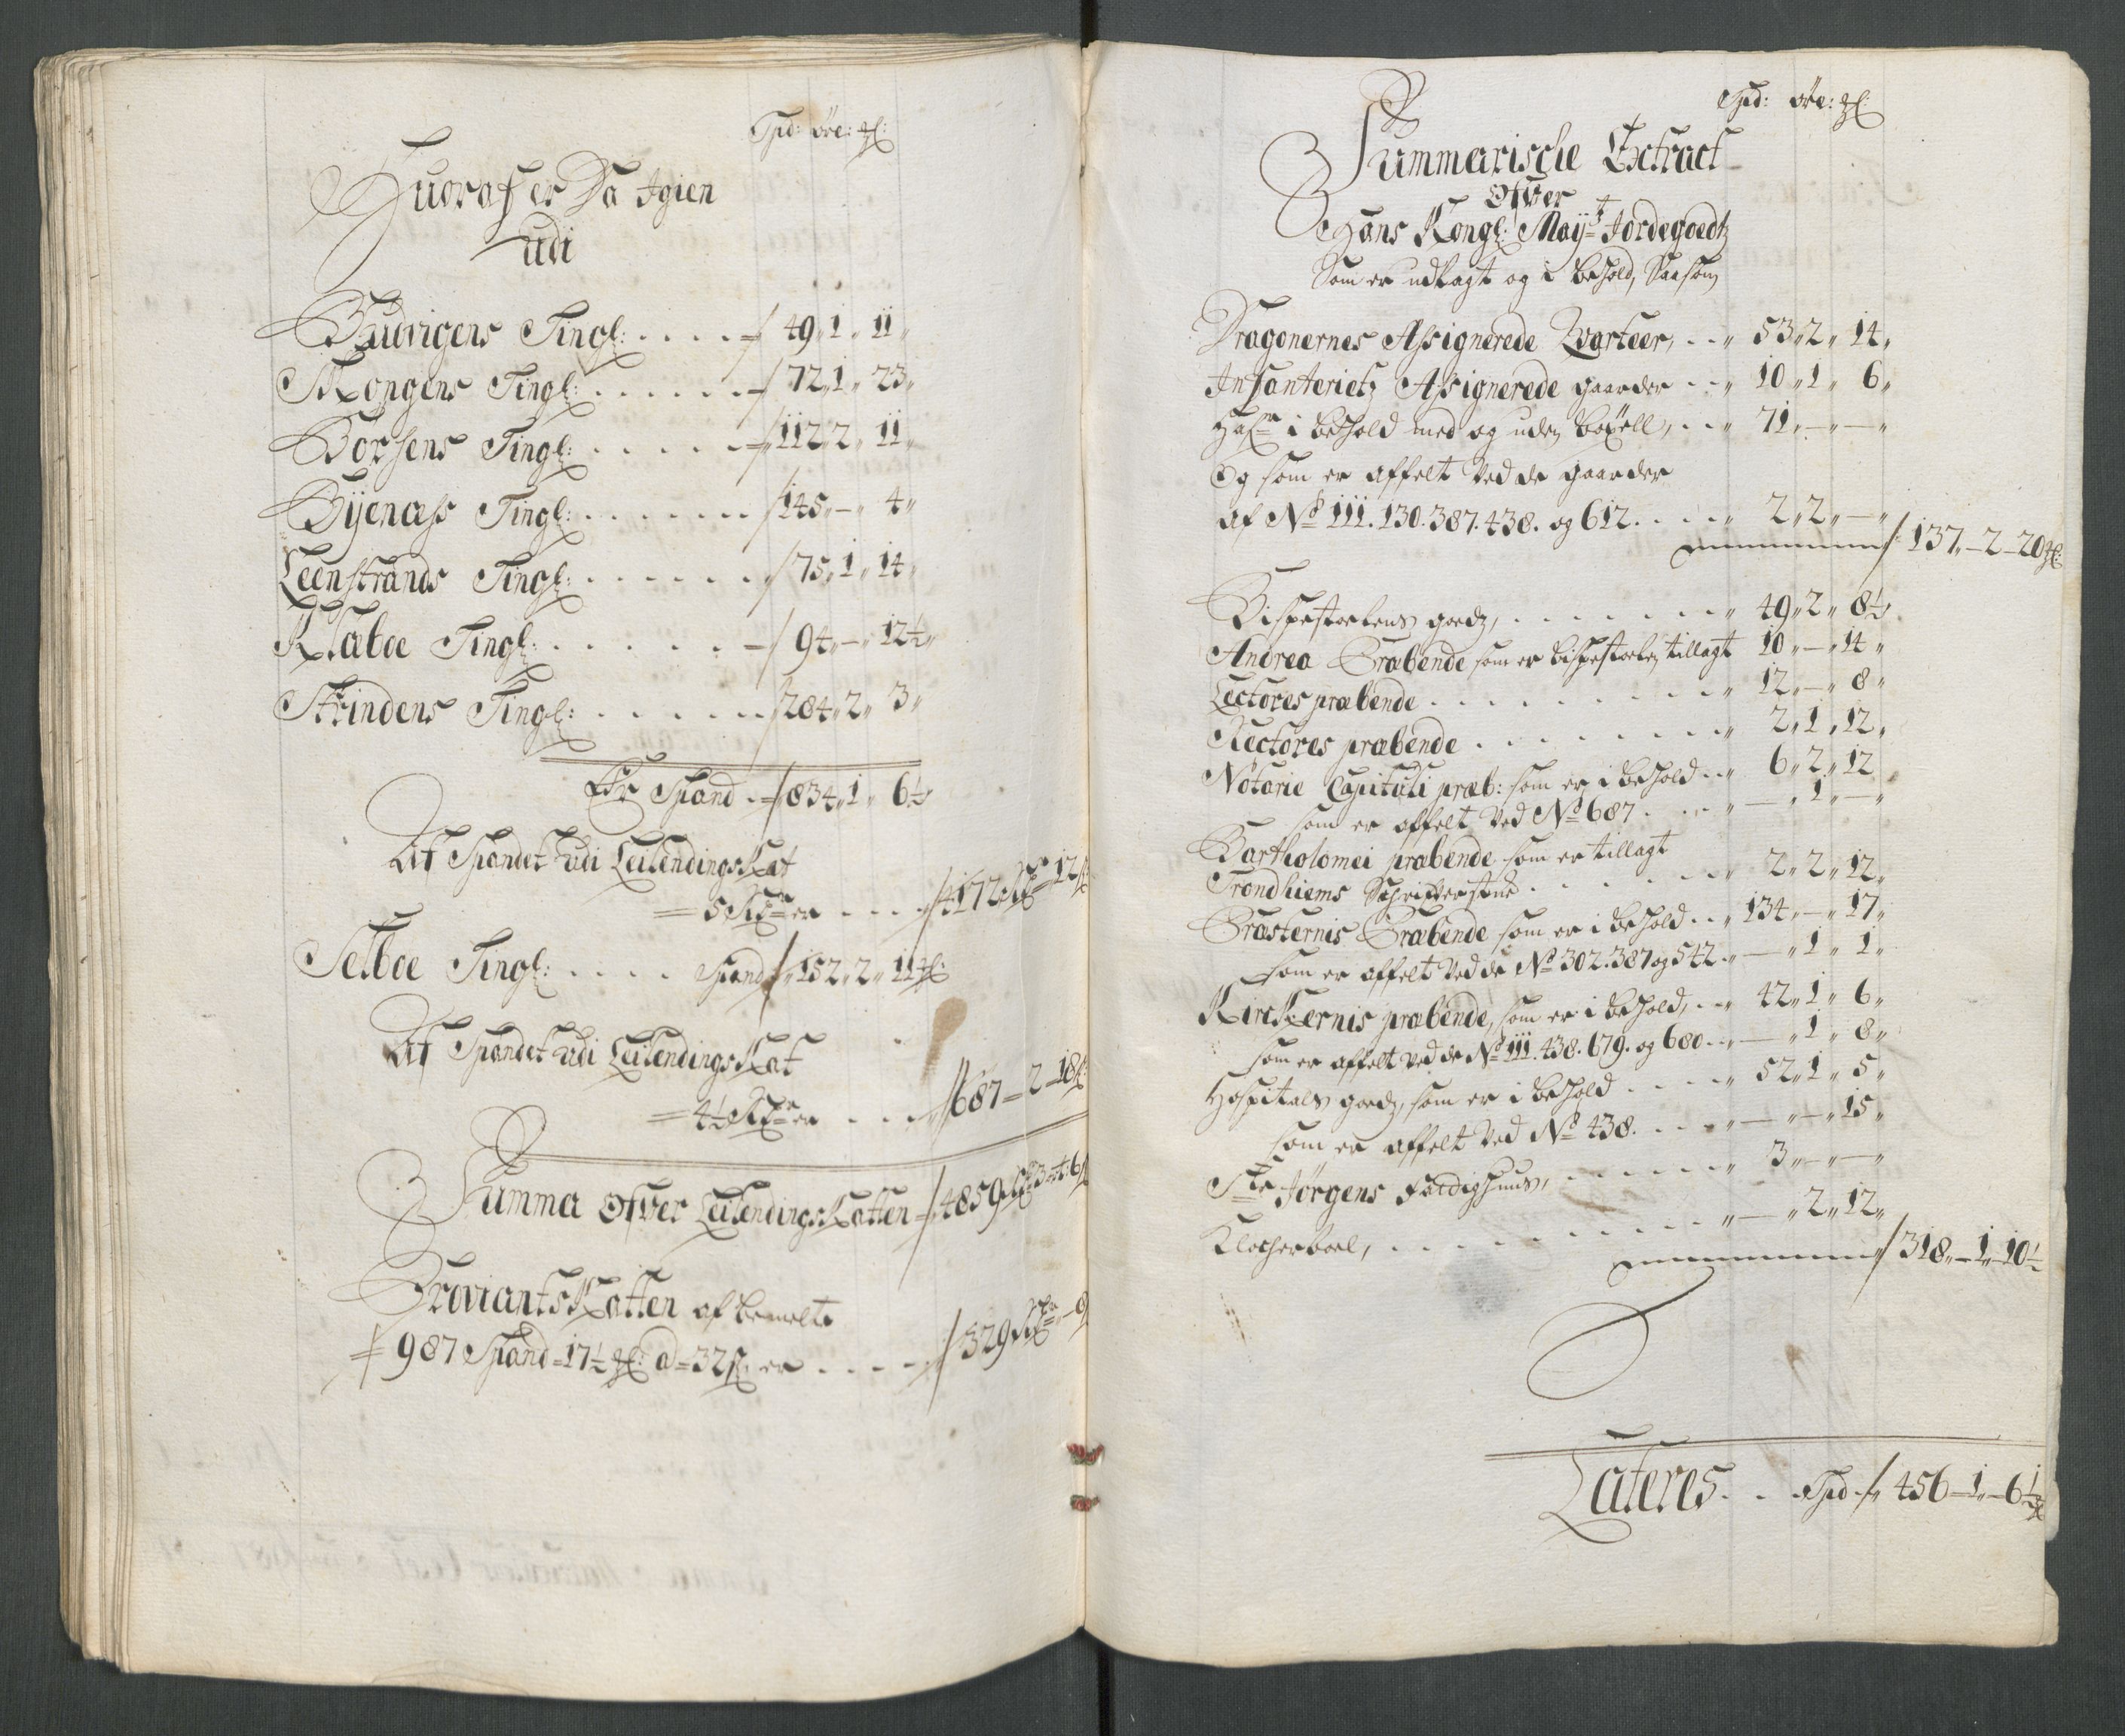 Spd: öre: gl:
Huoraf er Da Igien
udi
Budvigens Tingl: . . . . 49 „ 1 „ 11 „
Skongens Tingl: . . . . . . 72 „ 1 „ 23 „
Borsens Tingl: . . . . . 112 „ 2 „ 11 „
Byenæss Tingl: . . . . . . . 145 „ — „ 4 „
Leenstrands Tingl: . . . . . . 75 „ 1 „ 14 „
Klæboe Tingl: . . . . . . 94 „ — „ 12½ „
Strindens Tingl: . . . . . . 284 „ 2 „ 3 „
Er Spand . 834 „ 1 „ 6½ „
Af Spandet udi Leilendings Skat
= 5 Rdr er . . . . 4172 Rdr = 12 s
Selboe Tingl: . . . . Spand 152 „ 2 „ 11 gl:
Af Spandet udi Leilendings Skat
= 4½ Rdr er . . . . 687 — 2 — 18 s:
Summa Ofver Leilendings Skatten 4859 Rdr 3 ort: 6 s
Proviant Skatten af bemelte
987 Spand = 17½ gl: a = 32 s: er . . . . . 329 Rdr —
Spd: öre: gl:
Summarische Extract
Ofver
Hans Kongl: Mayts Jordegoedtz
Som er udlagt og i behold, Saasom
Dragonernes Assignerede Qvarteer, . . „ 53 „ 2 „ 14 „
Infanterietz Assignerede gaarder . . „ 10 „ 1 „ 6 „
i behold med og uden böxell, . . „ 71 „ — „ — „
Og som er affelt Ved de gaarder
af No 111. 130. 387. 438. og 612. . . . . „ 2 „ 2 „ — „
137 „ — 2 — 20 gl:
Bispestoelens goedz, . . . . . . . „ 49 „ 2 „ 8½ „
Andrea Præbende som er bispestoelen tillagt 10 „ — „ 14 „
Lectores præbende . . . . . . . . . „ 12 „ — „ 8 „
Rectores præbende . . . . . . . . „ 2 „ 1 „ 12 „
Notarie Capituli præb: som er i behold . . „ 6 „ 2 „ 12
som er affelt Ved No 687 . . . . „ — „ 1 „ — „
Bartholomei præbende som er tillagt
Trondhiems . . . . . . . „ 2 „ 2 „ 12 „
Præsternis Præbende som er i behold . . „ 134 „ — „ 17 „
som er affelt Ved de No 302. 387 og 542 . „ — „ 1 „ 1 „
Kirckernis præbende, som er i behold, . . „ 42 „ 1 „ 6 „
som er affelt Ved de No 111. 438. 679. og 680 . . „ — „ 1 „ 8 „
Hospitals goedz, som er i behold . . . . . „ 52 „ 1 „ 5 „
som er affelt Ved No 438. . . . . „ — „ — „ 15 „
Ste Jörgens Fattighuus, . . . . . . „ 3 „ — „ — „
Klocherboel, . . . . . . . . „ — „ 2 „ 12 „
318 „ — 1 „ — 10½
Lateres . . . Spd „ 456 — 1 „ — 6½ gl